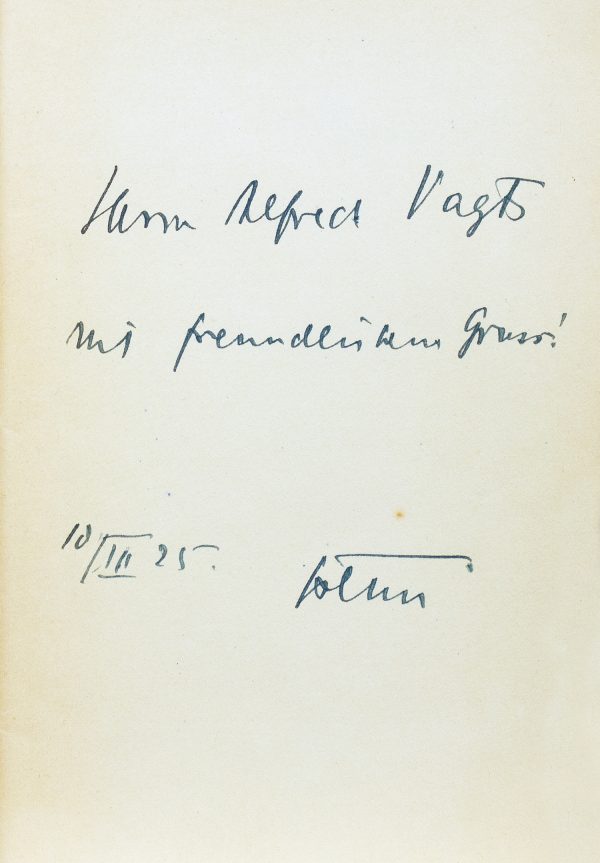 Herrn Alfred Vagts
mit freundlichem Gruss!
10/III 25.